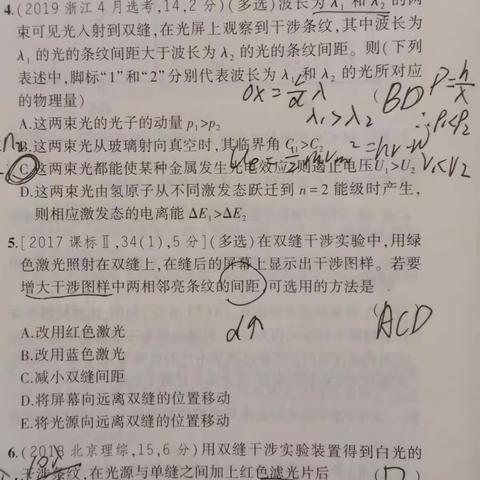 4.(2019 浙江 4 月选考,14,2 分)(多选)波长为 λ₁ 和 λ₂ 的两
束可见光入射到双缝,在光屏上观察到干涉条纹,其中波长为
λ₁ 的光的条纹间距大于波长为 λ₂ 的光的条纹间距。则(下列
表述中,脚标“1”和“2”分别代表波长为 λ₁ 和 λ₂ 的光所对应
的物理量)
(BD
P=h/λ
λ₁>λ₂
∴P₁<P₂
A.这两束光的光子的动量 p₁>p₂
B.这两束光从玻璃射向真空时,其临界角 C₁>C₂
C.这两束光都能使某种金属发生光电效应,则遏止电压U₁>U₂
ν₁<ν₂
D.这两束光由氢原子从不同激发态跃迁到 n=2 能级时产生,
则相应激发态的电离能 ΔE₁>ΔE₂
5.[2017 课标Ⅱ,34(1),5 分](多选)在双缝干涉实验中,用绿
色激光照射在双缝上,在缝后的屏幕上显示出干涉图样。若要
增大干涉图样中两相邻亮条纹的间距,可选用的方法是
(ACD
d↑
A.改用红色激光
B.改用蓝色激光
C.减小双缝间距
D.将屏幕向远离双缝的位置移动
E.将光源向远离双缝的位置移动
6.(2018 北京理综,15,6 分)用双缝干涉实验装置得到白光的
干涉条纹,在光源与单缝之间加上红色滤光片后
(D